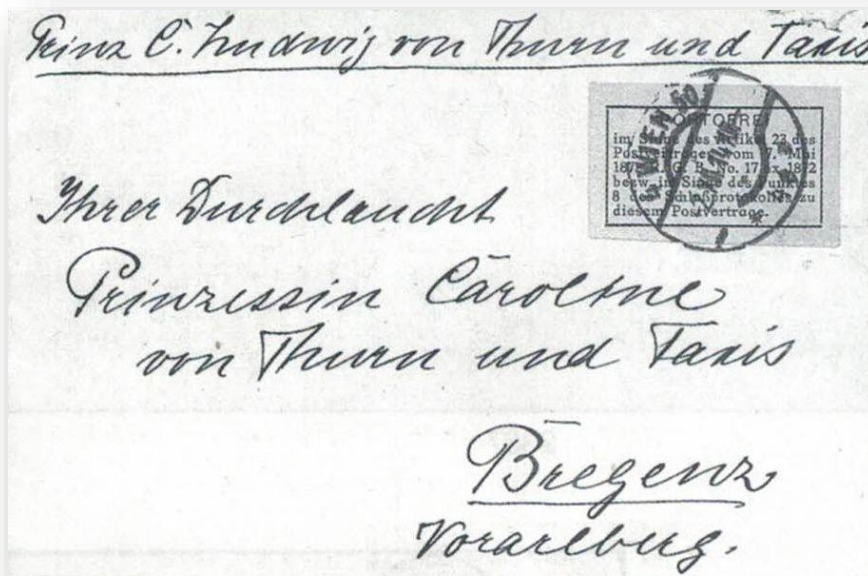 Prinz C. Ludwig von Thurn und Taxis
PORTOFREI
im Sinne des Artikel 23 des
Postvertrages vom 7. Mai
1872 R. G. B. No. 17 ex 1872
bezw. im Sinne des Punktes
8 des Schlußprotokolles zu
diesem Postvertrage.
WIEN
Ihrer Durchlaucht
Prinzessin Caroline
von Thurn und Taxis
Bregenz
Vorarlberg.